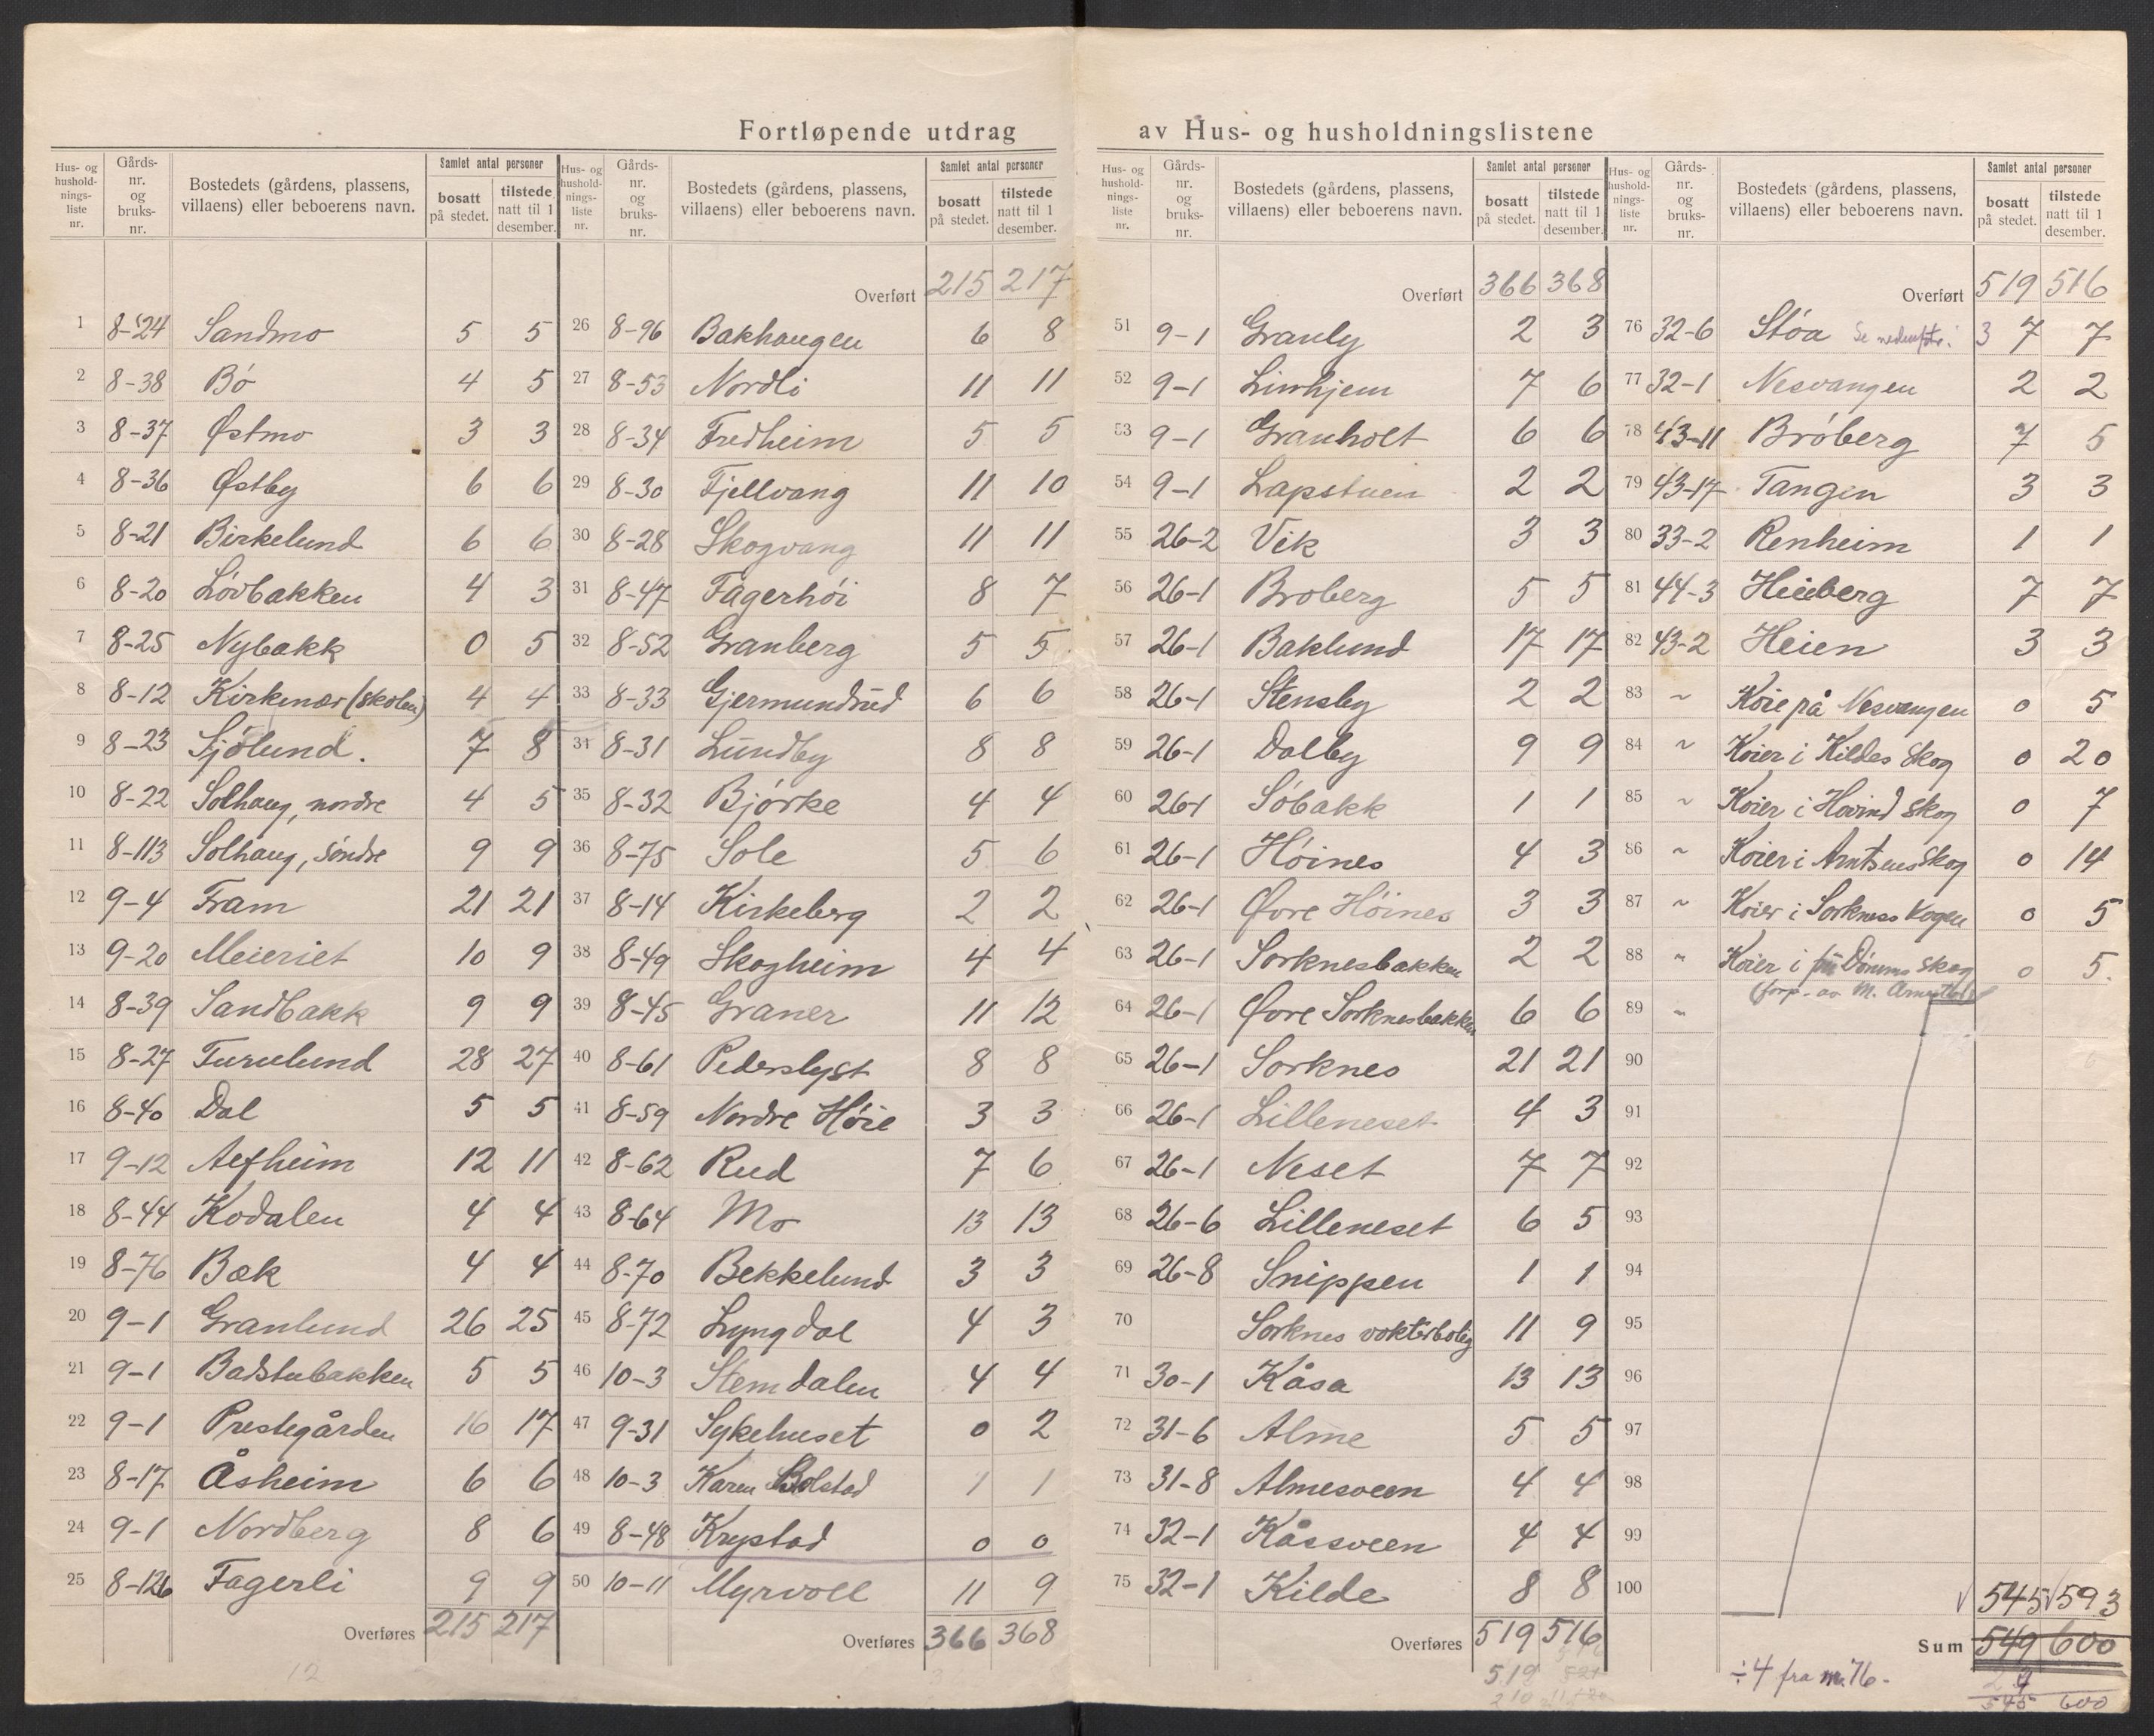 Fortløpende utdrag av Hus- og husholdningslistene
Hus- og husholdningsliste nr. | Gårds-nr. og bruks-nr. | Bostedets (gårdens, plassens, villaens) eller beboerens navn. | Samlet antal personer bosatt på stedet. | tilstede natt til 1 desember.
1 8-24 Sandmo 5 5
2 8-38 Bö 4 5
3 8-37 Østmo 3 3
4 8-36 Østby 6 6
5 8-21 Birkelund 6 6
6 8-20 Lövbakken 4 3
7 8-25 Nybakk 0 5
8 8-12 Kirkenær (skolen) 4 4
9 8-23 Sjölund. 7 8
10 8-22 Solhaug, nordre 4 5
11 8-113 Solhaug, söndre 9 9
12 9-4 Fram 21 21
13 9-20 Meieriet 10 9
14 8-39 Sandbakk 9 9
15 8-27 Furulund 28 27
16 8-40 Dal 5 5
17 9-12 Alfheim 12 11
18 8-44 Kodalen 4 4
19 8-76 Bæk 4 4
20 9-1 Granlund 26 25
21 9-1 Badstubakken 5 5
22 9-1 Prestegården 16 17
23 8-17 Åsheim 6 6
24 9-1 Nordberg 8 6
25 8-126 Fagerli 9 9
Overføres 215 217
12
Hus- og husholdningsliste nr. | Gårds-nr. og bruks-nr. | Bostedets (gårdens, plassens, villaens) eller beboerens navn. | Samlet antal personer bosatt på stedet. | tilstede natt til 1 desember.
Overført 215 217
26 8-96 Bakhaugen 6 8
27 8-53 Nordli 11 11
28 8-34 Fredheim 5 5
29 8-30 Fjellvang 11 10
30 8-28 Skogvang 11 11
31 8-47 Fagerhöi 8 7
32 8-52 Granberg 5 5
33 8-33 Gjermundrud 6 6
34 8-31 Lundby 8 8
35 8-32 Bjørke 4 4
36 8-75 Sole 5 6
37 8-14 Kirkeberg 2 2
38 8-49 Skogheim 4 4
39 8-45 Graner 11 12
40 8-61 Pederslyst 8 8
41 8-59 Nordre Höie 3 3
42 8-62 Rud 7 6
43 8-64 Mo 13 13
44 8-70 Bekkelund 3 3
45 8-72 Lyngdal 4 3
46 10-3 Stemdalen 4 4
47 9-31 Sykehuset 0 2
48 10-3 Karen Bolstad 1 1
49 8-48 Krystad 0 0
50 10-11 Myrvoll 11 9
Overføres 366 368
Hus- og husholdningsliste nr. | Gårds-nr. og bruks-nr. | Bostedets (gårdens, plassens, villaens) eller beboerens navn. | Samlet antal personer bosatt på stedet. | tilstede natt til 1 desember.
Overført 366 368
51 9-1 Granly 2 3
52 9-1 Linhjem 7 6
53 9-1 Granholt 6 6
54 9-1 Lapstuen 2 2
55 26-2 Vik 3 3
56 26-1 Broberg 5 5
57 26-1 Baklund 17 17
58 26-1 Stensby 2 2
59 26-1 Dalby 9 9
60 26-1 Söbakk 1 1
61 26-1 Höines 4 3
62 26-1 Øvre Höines 3 3
63 26-1 Sorknesbakken 2 2
64 26-1 Øvre Sorknesbakken 6 6
65 26-1 Sorknes 21 21
66 26-1 Lilleneset 4 3
67 26-1 Neset 7 7
68 26-6 Lilleneset 6 5
69 26-8 Snippen 1 1
70 Sorknes vokterbolig 11 9
71 30-1 Kåsa 13 13
72 31-6 Alme 5 5
73 31-8 Almesveen 4 4
74 32-1 Kåssveen 4 4
75 32-1 Kilde 8 8
Overføres 519 516
519
Hus- og husholdningsliste nr. | Gårds-nr. og bruks-nr. | Bostedets (gårdens, plassens, villaens) eller beboerens navn. | Samlet antal personer bosatt på stedet. | tilstede natt til 1 desember.
Overført 519 516
76 32-6 Støa Se 3 7 7
77 32-1 Nesvangen 2 2
78 43-11 Bröberg 7 5
79 43-17 Tangen 3 3
80 33-2 Renheim 1 1
81 44-3 Heiberg 7 7
82 43-2 Heien 3 3
83 ~ Koie på Nesvangen 0 5
84 ~ Koier i Kildes skog 0 20
85 ~ Koier i Hovind skog 0 7
86 ~ Koier i Arntsens skog 0 14
87 ~ Koier i Sorknesskogen 0 5
88 " Koier i Dönums skog 0 5.
(forp. av M.
89 "
90
91
92
93
94
95
96
97
98
99
100
545 593
Sum 549 600
÷4 fra nr. 76.
4
545 600